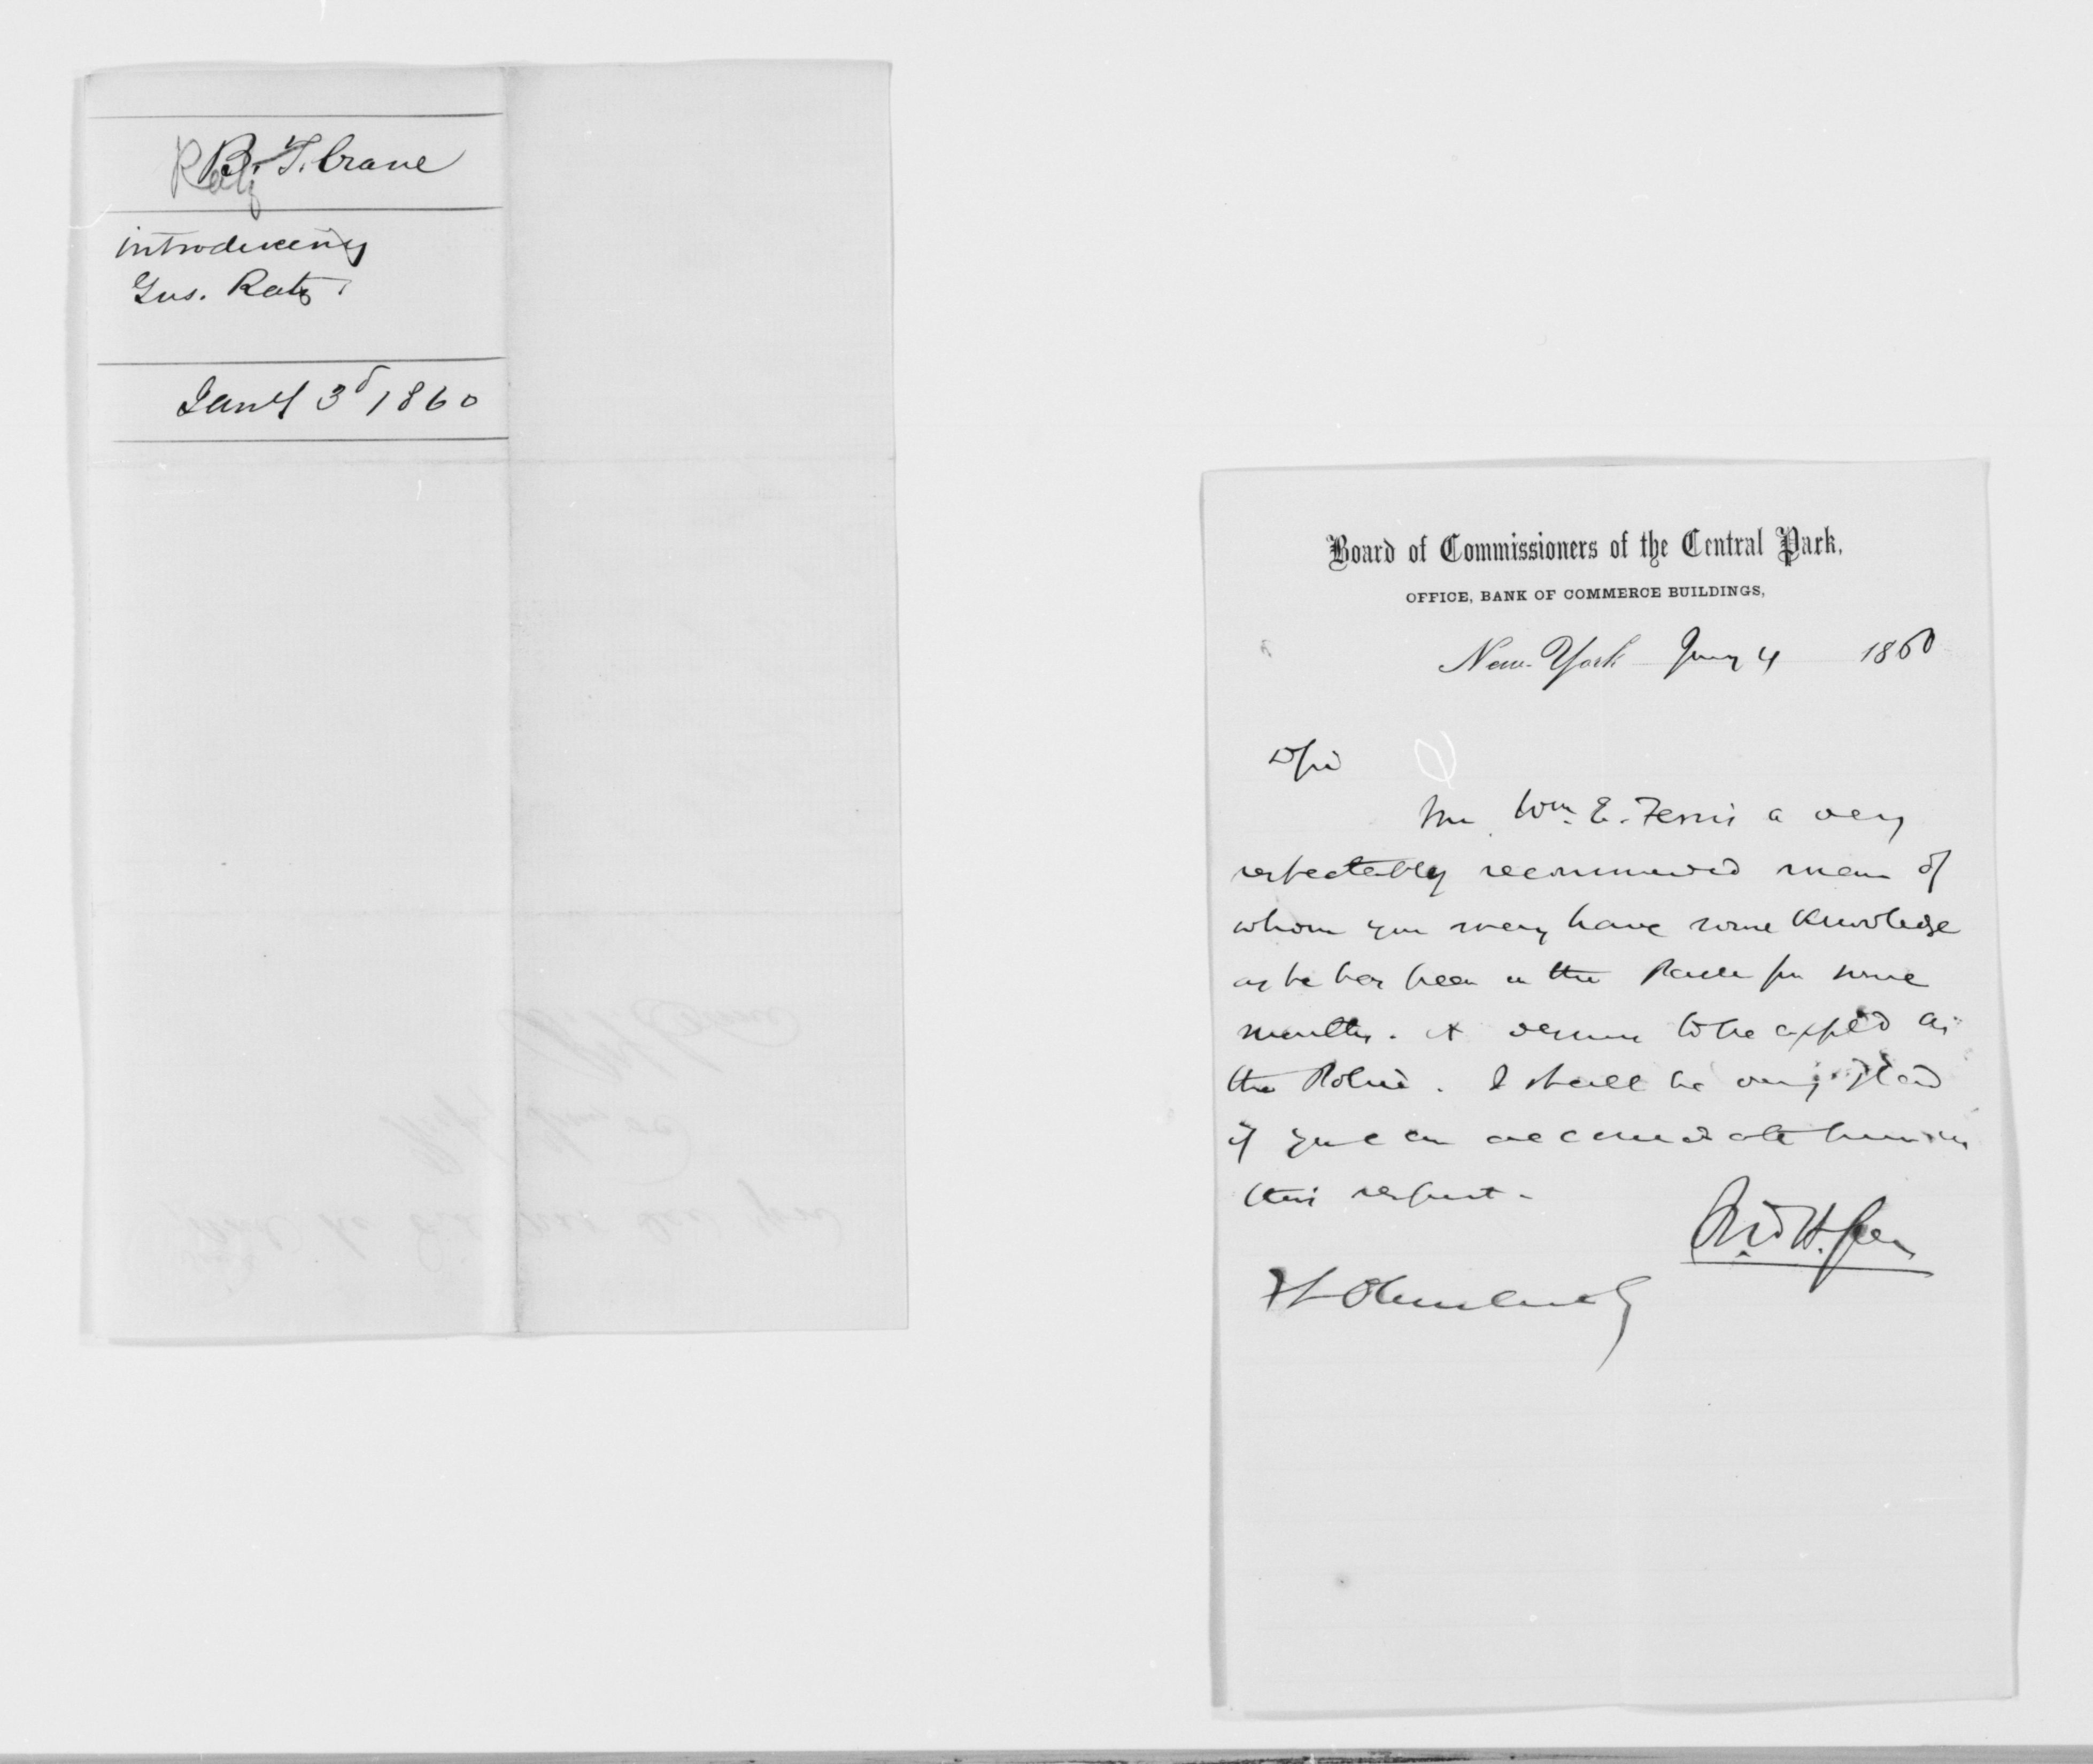 B. T. Crane
Ratz
introduceing
Gus. Ratz
Jany 3d 1860
Board of Commissioners of the Central Park,
OFFICE, BANK OF COMMERCE BUILDINGS,
New-York Jany 4 1860
D Sir
Mr Wm. E. Ferris a very
respectably recommended man of
whom you may have some Knowledge
as he has been on the Park for some
months. desires to be appd on
the Police. I shall be very glad
if you can accomodate him in
this respect.
And H. Green
F L Olmsted Esq